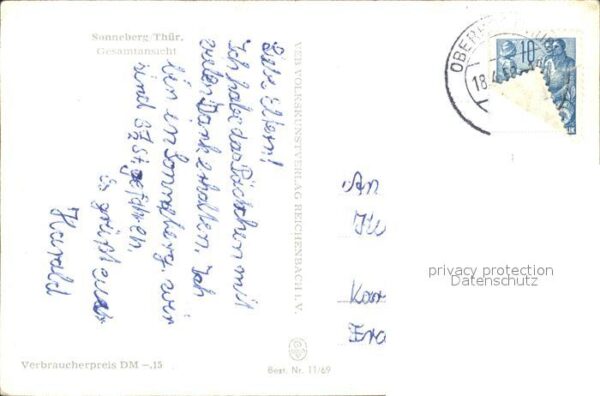 Sonneberg/Thür.
Gesamtansicht
Liebe Eltern!
Ich habe das Päckchen mit
vielen Dank erhalten. Ich
bin in Sonneberg, wir
sind 3½ St gefahren,
Es grüßt euch
Harald
VEB VOLKSKUNSTVERLAG REICHENBACH I. V.
18.4.58
10
An
Kar
privacy protection
Datenschutz
Verbraucherpreis DM –.15
Best. Nr. 11/69